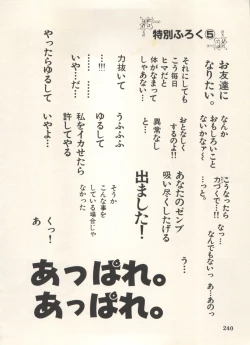 特別ふろく⑤
お友達に
なりたい。
なんか
おもしろいこと
ないかなァ〜
…こうなったら
力づくで…!!
…っと。
なっ…
なんでもないっ あーあのっ
それにしても
こう毎日
ヒマだと
体がなまって
しゃあない…
おとなしく
するのよ!!
異常なし
と…
あなたのゼンブ
吸い尽くしたげる
う…
力抜いて
……
……!!
いや…だ…
うふふふ
ゆるして
…
出ましたー!
やったらゆるして
いやよ…
私をイカせたら
許してやる
そうか
こんな事を
している場合じゃ
なかった
くっ!
あ
あっぱれ。
あっぱれ。
240